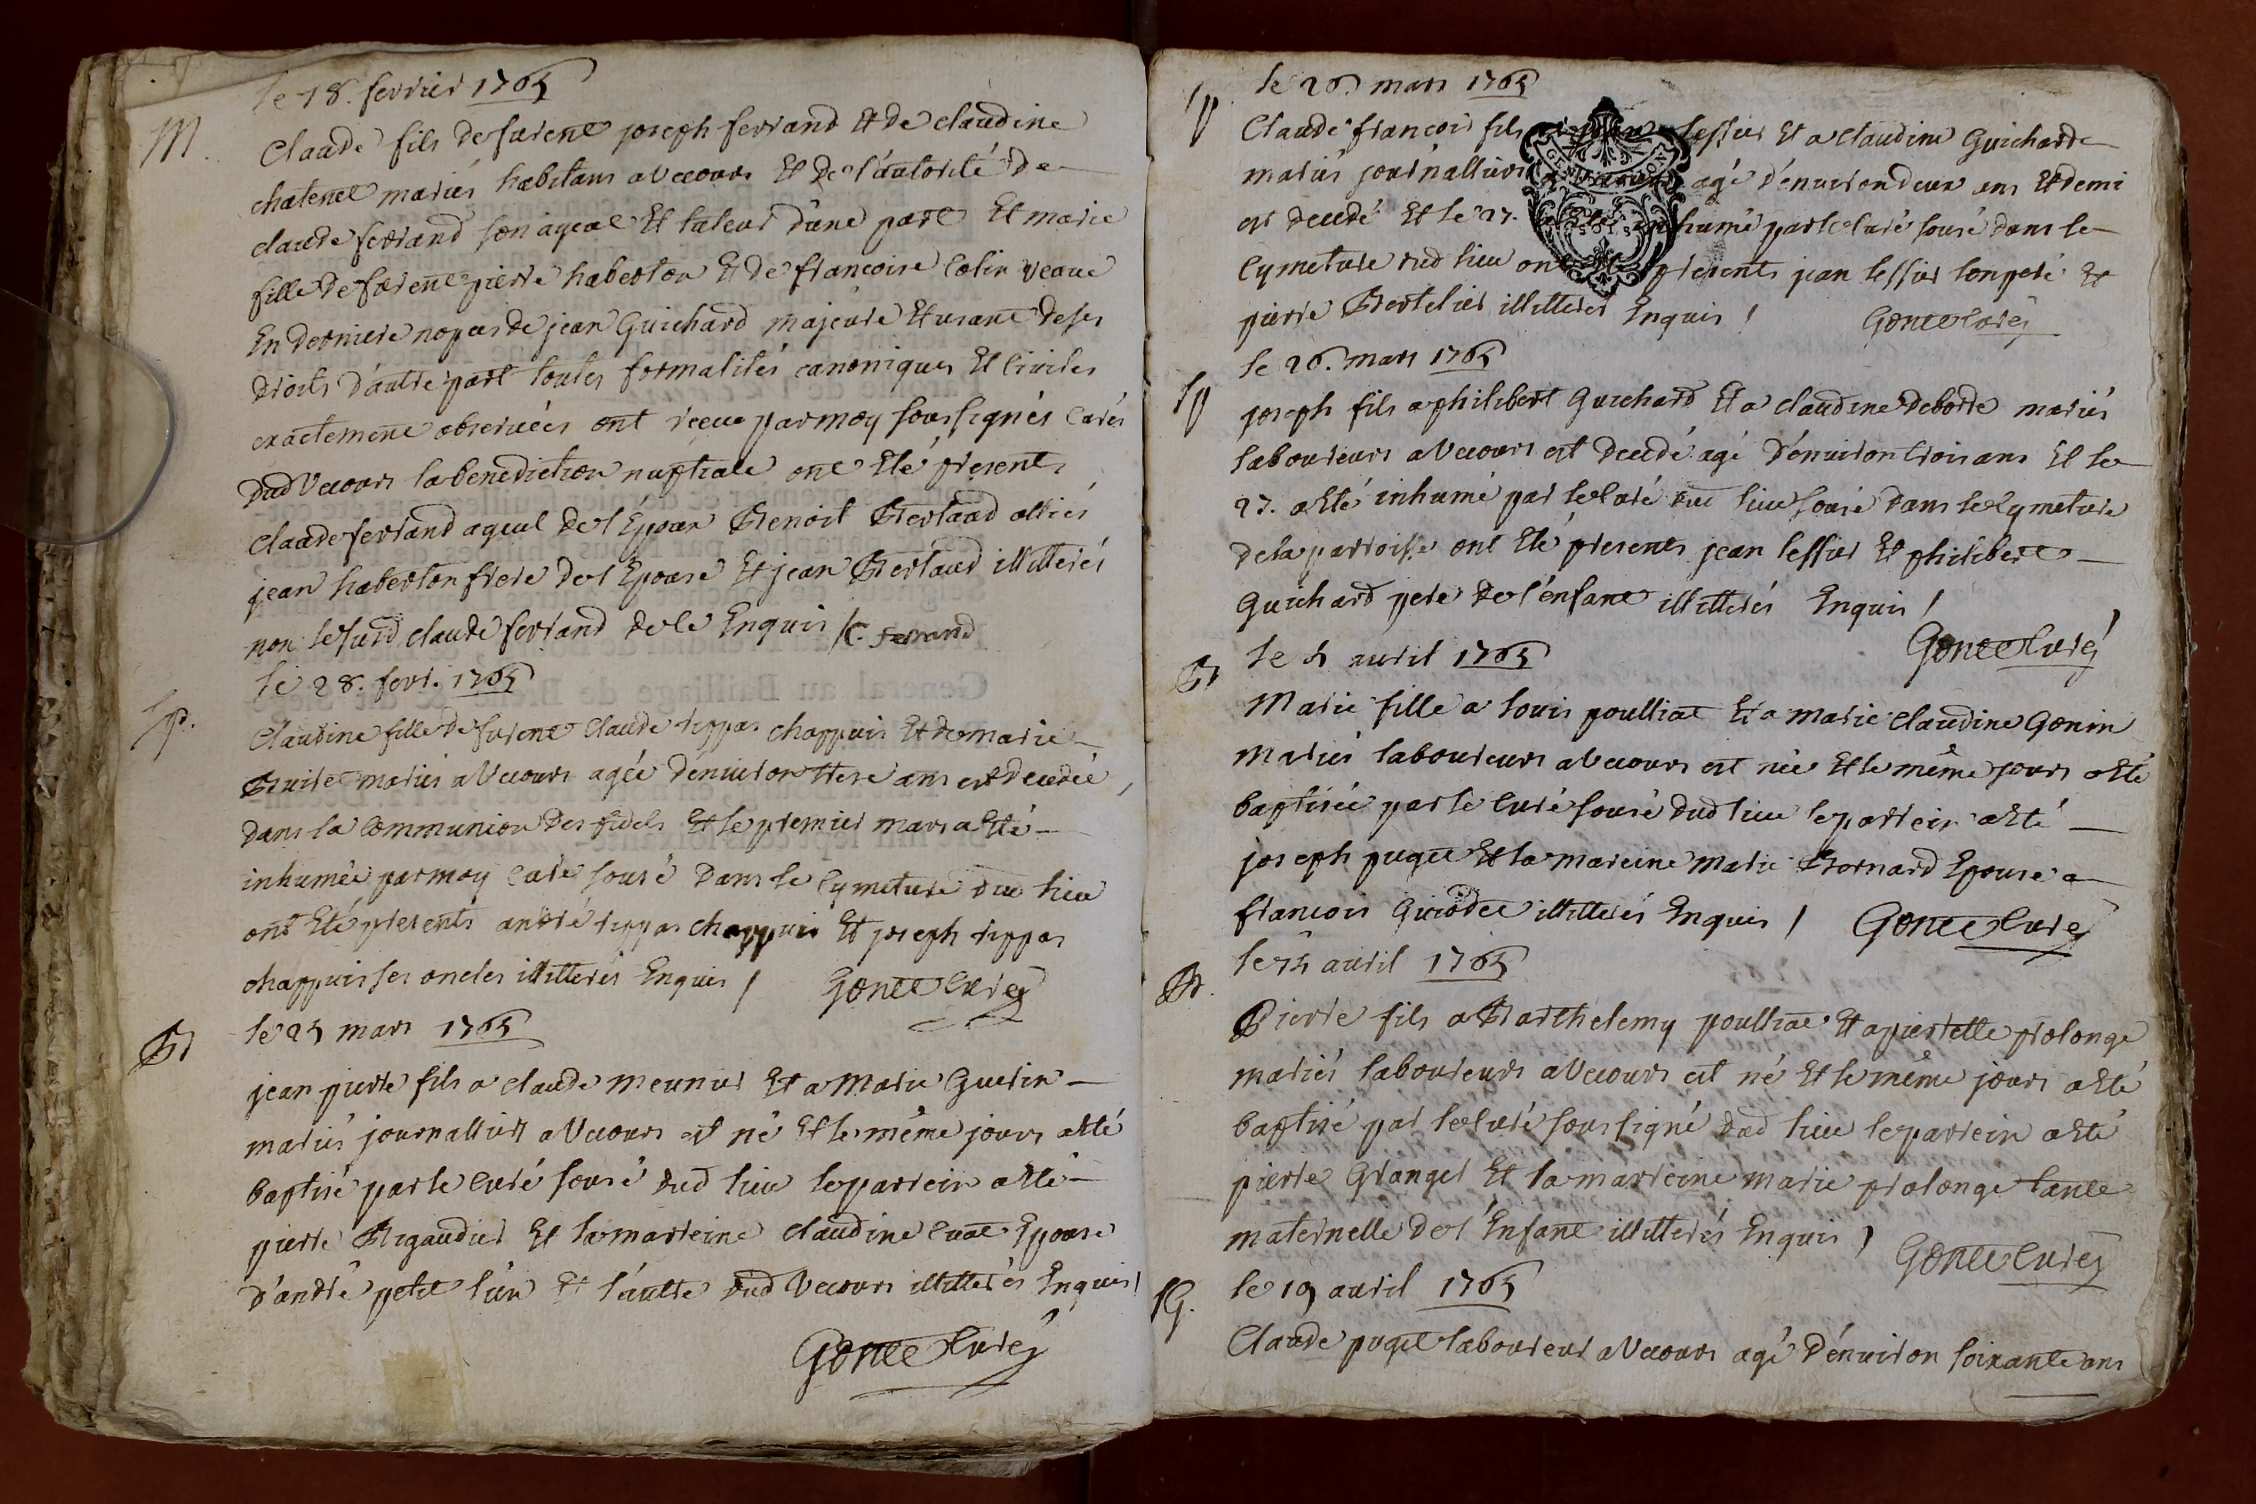 le 18. fevrier 1765
M.
Claude fils de furent joseph ferrand Et de claudine
chatenet mariés habitans a Vecours Et de l'autorité de
claude ferrand son ayeal Et tuteur d'une part Et marie
fille de furent pierre haberton Et de francoise colin veuve
En derniere nopces de jean Guichard majeure Et usant de ses
droits d'autre part toutes formalités canoniques Et civiles
exactement observées ont receue par moy soussignés curés
dud Vecours la benediction nuptiale ont Eté presents
claude ferrand ayeul de l'Epoux Benoit Bertaud alliés
jean haberton frere de l'Epouse Et jean Bertaud illitterés
non le susd claude ferrand de ce Enquis / C. ferrand
le 28. fevr. 1765
Sp.
Claudine fille de furent claude tippas chappuis Et de marie
Buire mariés a Vecours agée d'environ treze ans est decedée
dans la communion des fidels Et le premier mars a Eté
inhumée par moy curé sousé dans le cymetiere dud lieu
ont Eté presents andré tippas chappuis Et joseph tippas
chappuis ses oncles illitterés Enquis / Gonet curé
le 25 mars 1765
Bt
jean pierre fils a claude meunier Et a Marie Guerin
mariés journalliers a Vecours est né Et le même jours a Eté
baptisé par le curé sousé dud lieu le parrein a Eté
pierre Rigaudier Et la marreine claudine cuat Epouse
d'andré petit l'un Et l'autre dud Vecours illitterés Enquis /
Gonet curé
le 26. mars 1765
Sp
Claude francois fils a jean tessier Et a claudine Guichard
GEN
mariés journalliers agé d'environ deux ans Et demi
est decedé Et le 27. inhumé par le curé sousé dans le
cymetiere dud lieu ont presents jean tessier son pere Et
pierre Bertelier illitterés Enquis / Gonet curé
le 26. mars 1765
Sp
joseph fils a philibert Guichard Et a claudine deborde mariés
laboureurs a Vecours est decedé agé d'environ trois ans Et le
27. a Eté inhumé par le curé dud lieu sousé dans le cymetiere
de la parroisse ont Eté presents jean tessier Et philibert
Guichard pere de l'enfant illitterés Enquis /
Gonet curé
le 5 avril 1765
Bt
Marie fille a louis poulliat Et a marie claudine Gonin
Mariés laboureurs a Vecours est née Et le même jours a Eté
baptisée par le curé sousé dud lieu le parrein a Eté
joseph puget Et la mareine Marie Bornard Epouse a
francois Guiodet illitterés Enquis / Gonet curé
le 15 avril 1765
Bt.
Pierre fils a Barthelemy poulliat Et a pierrette prolonge
mariés laboureurs a Vecours est né Et le même jours a Eté
baptisé par le curé soussigné dud lieu le parrein a Eté
pierre Granget Et la marreine marie prolonge tante
maternelle de l'Enfant illitterés Enquis / Gonet curé
le 19 avril 1765
SG.
Claude puget laboureur a Vecours agé d'environ soixante ans